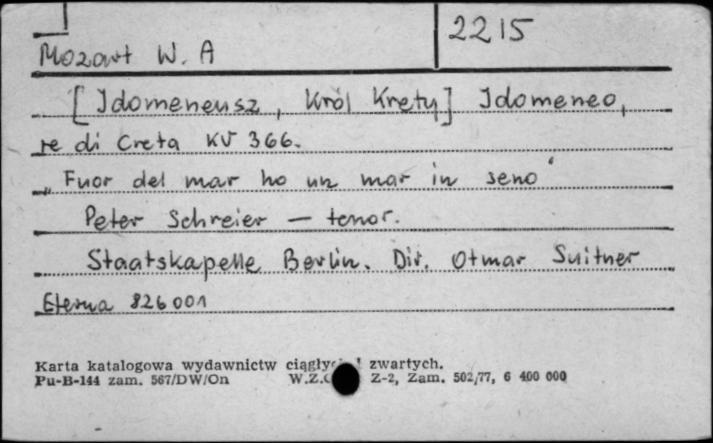 2215
Mozart W. A
[Idomeneusz, Król Krety] Idomeneo,
re di Creta KV 366.
„Fuor del mar ho un mar in seno“
Peter Schreier — tenor.
Staatskapelle Berlin. Dir. Otmar Suitner
Eterna 826001
Karta katalogowa wydawnictw zwartych.
Pu-B-144 zam. 567/DW/On W.Z. Z-2, Zam. 502/77, 6 400 000